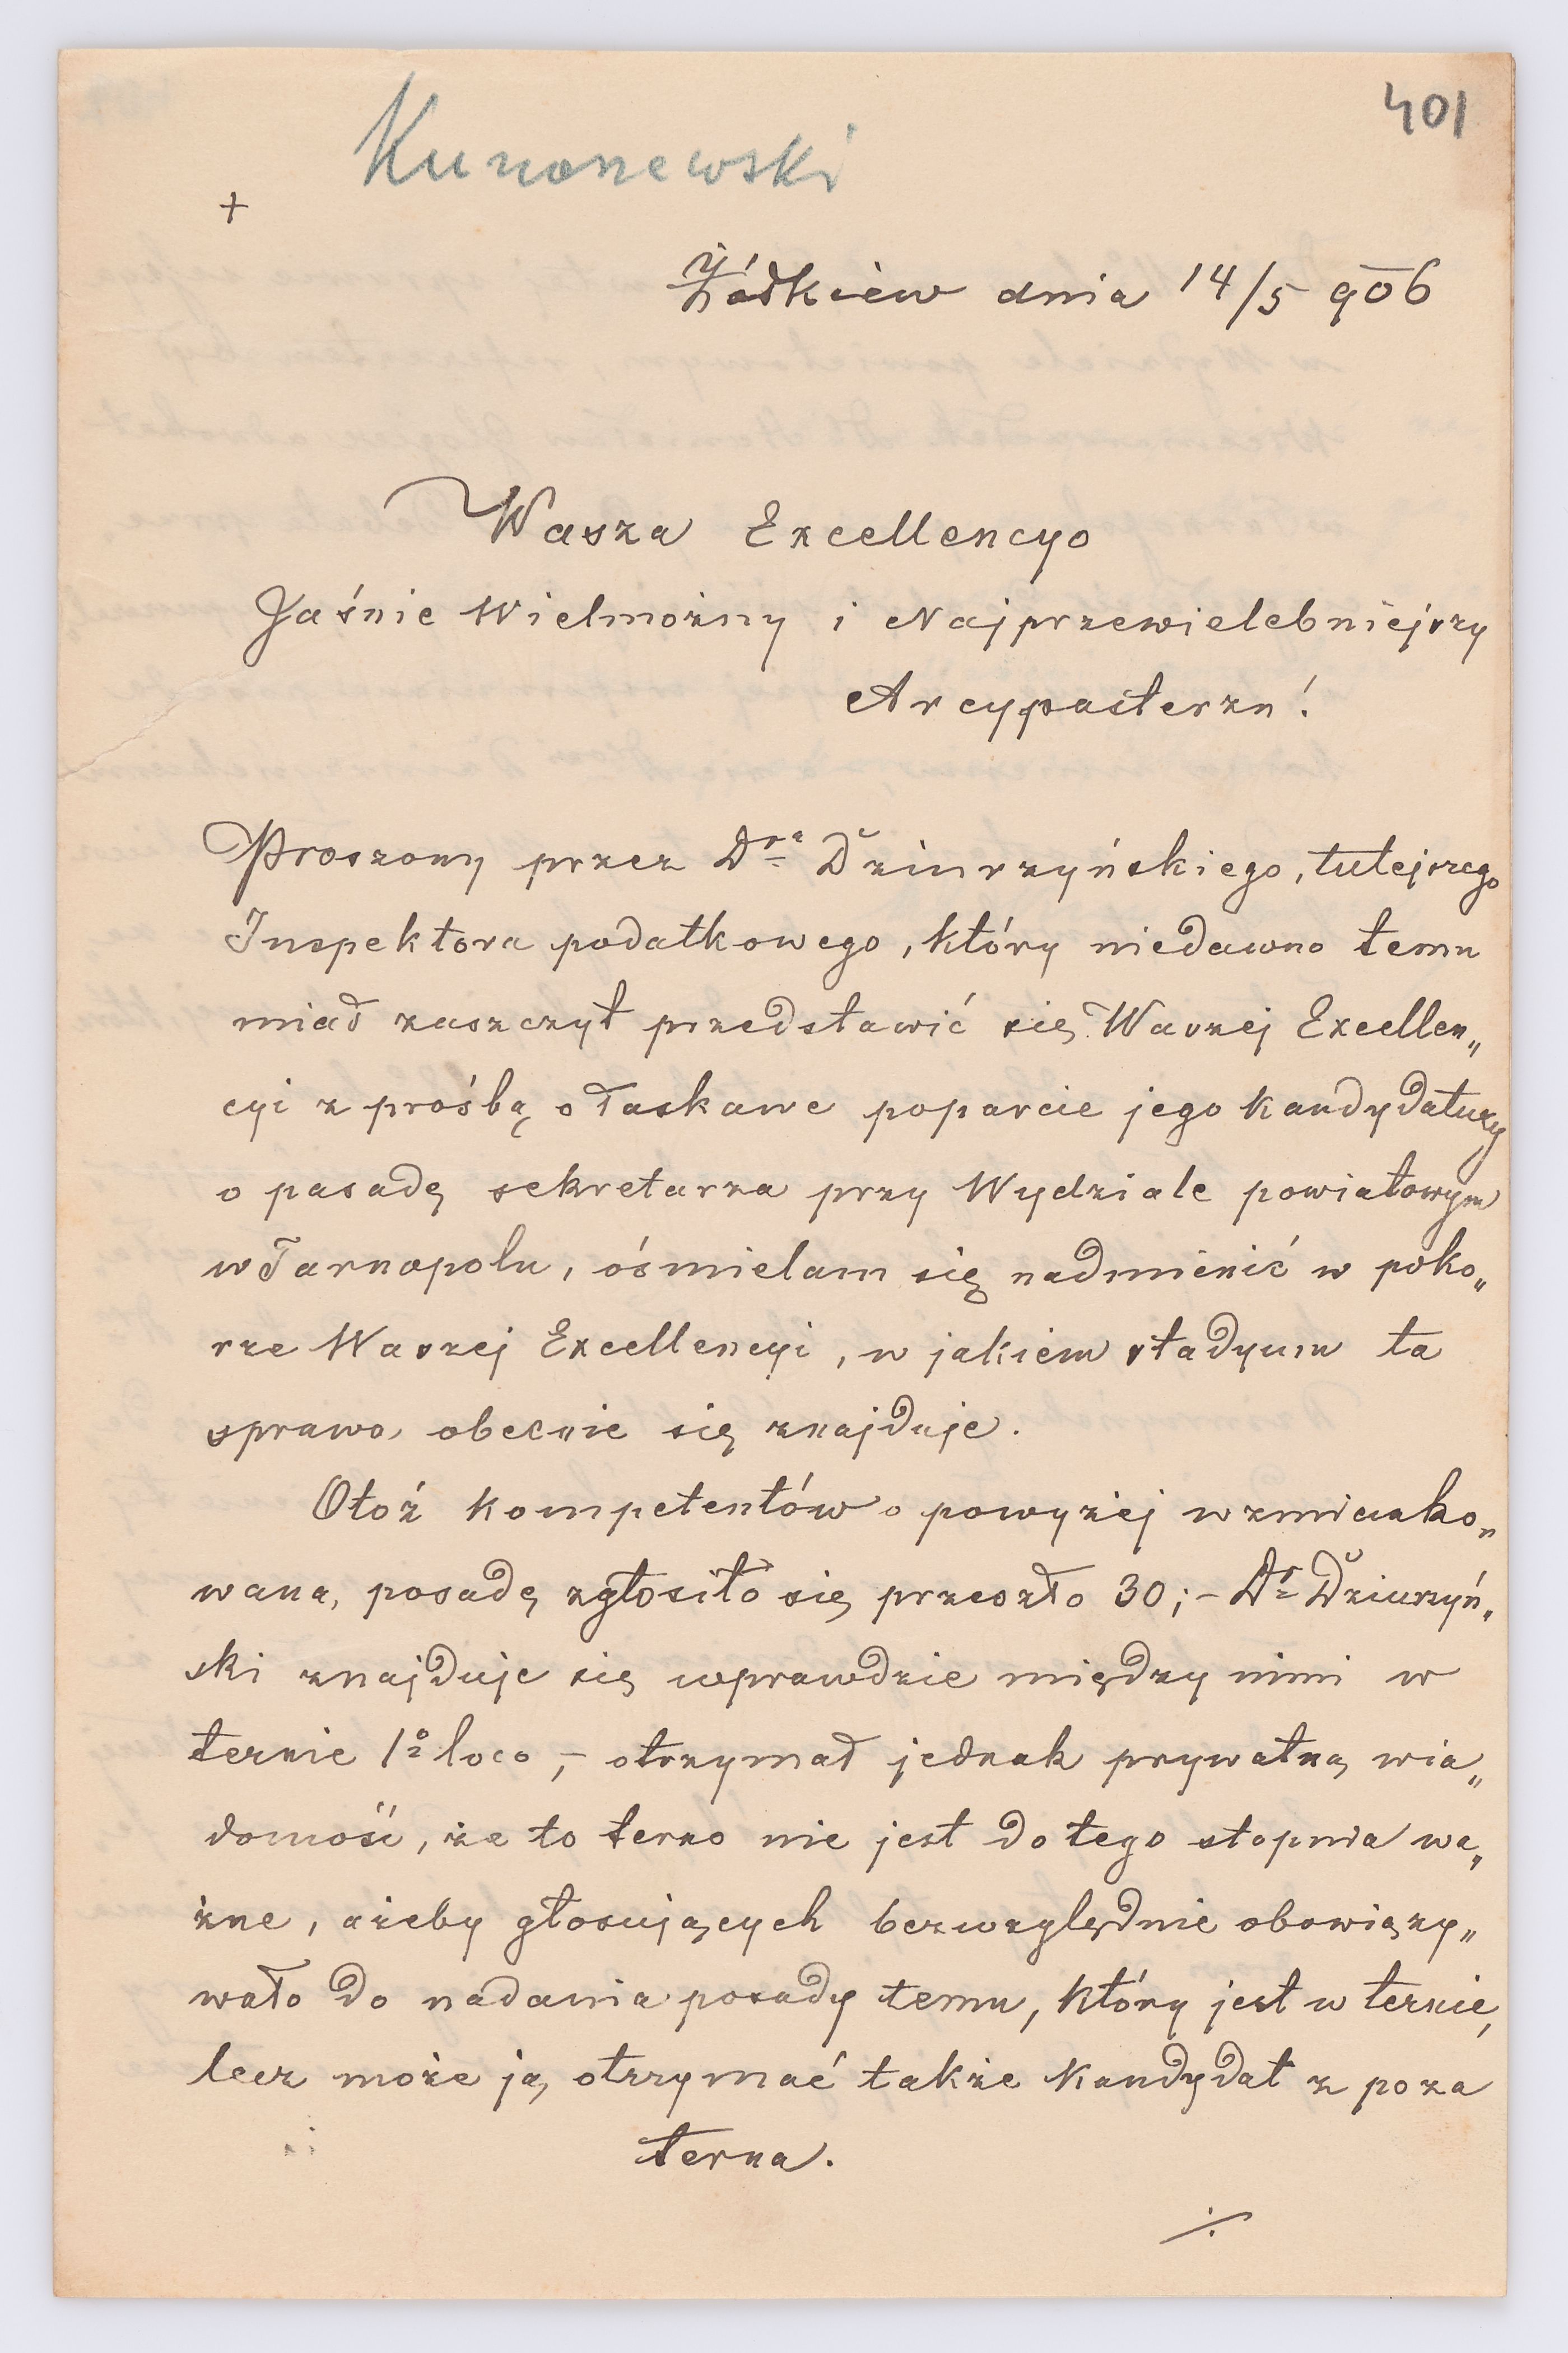 401
Kunanewski
+
Żółkiew dnia 14/5 906
Wasza Excellencyo
Jaśnie Wielmożny i Najprzewielebniejszy
Arcypasterzu!
Proszony przez Dra Dziurzyńskiego, tutejszego
Inspektora podatkowego, który niedawno temu
miał zaszczyt przedstawić się Waszej Excellen„
cyi z prośbą o łaskawe poparcie jego kandydatury
o posadę sekretarza przy Wydziale powiatowym
w Tarnopolu, ośmielam się nadmienić w poko„
rze Waszej Excellencyi, w jakiem stadyum ta
sprawa obecnie się znajduje.
Otóż kompetentów o powyżej wzmianko„
waną posadę zgłosiło się przeszło 30; – Dr Dziurzyń„
ski znajduje się wprawdzie między nimi w
ternie 1o loco, – otrzymał jednak prywatną wia„
domość, że to terno nie jest do tego stopnia wa„
żne, ażeby głosujących bezwzględnie obowiązy„
wało do nadania posady temu, który jest w ternie,
lecz może ją otrzymać także kandydat z poza
terna.
./.